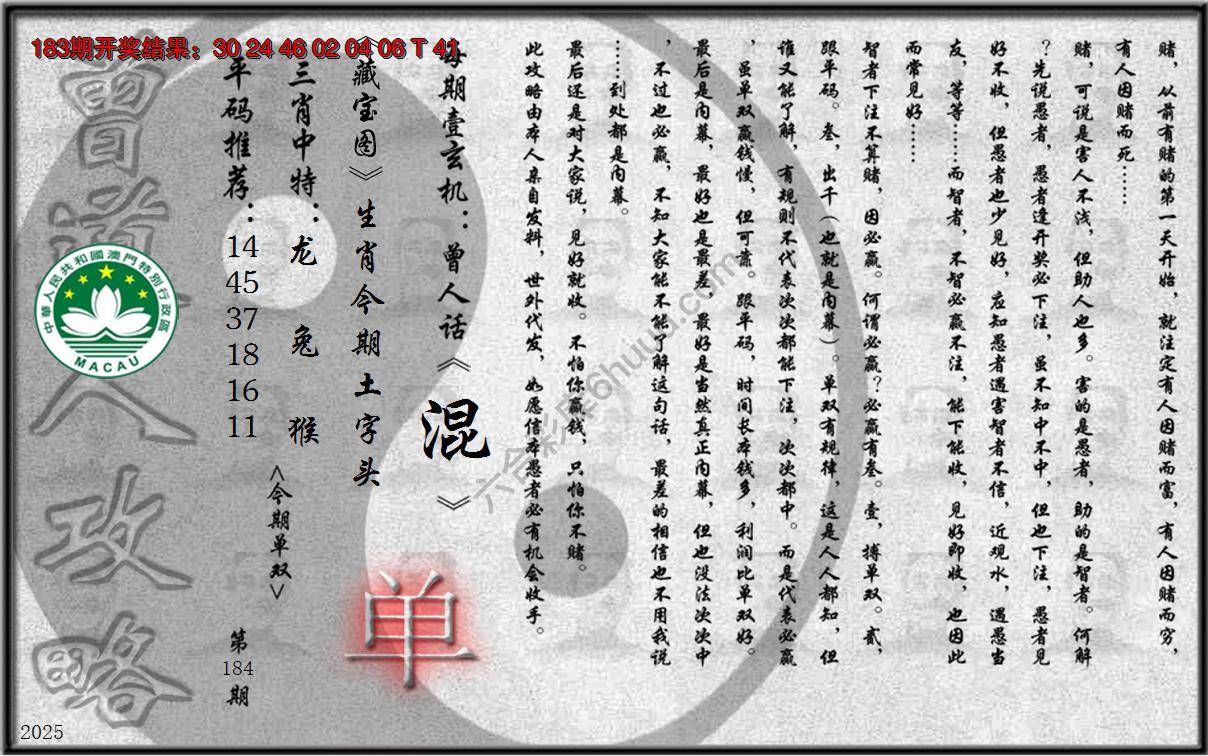 183期开奖结果：30 24 46 02 04 06 T 41
赌，从前有赌的第一天开始，就注定有人因赌而富，有人因赌而穷，
有人因赌而死……
赌，可说是害人不浅，但助人也多。害的是愚者，助的是智者。何解
？先说愚者，愚者逢开奖必下注，虽不知中不中，但也下注，愚者见
好不收，但愚者也少见好，应知愚者遇害智者不信，近观水，遇愚当
友，等等……而智者，不智必赢不注，能下能收，见好即收，也因此
而常见好……
智者下注不算赌，因必赢。何谓必赢？必赢有叁。壹，搏单双。贰，
跟平码。叁，出千（也就是内幕）。单双有规律，这是人人都知，但
谁又能了解，有规则不代表次次都能下注，次次都中。而是代表必赢
，虽单双赢钱慢，但可靠。跟平码，时间长本钱多，利润比单双好。
最后是内幕，最好也是最差，最好是当然真正内幕，但也没法次次中
，不过也必赢，不知大家能不能了解这句话，最差的相信也不用我说
……到处都是内幕。
最后还是对大家说，见好就收。不怕你赢钱，只怕你不赌。
此攻略由本人亲自发料，世外代发，如愿信本愚者必有机会收手。
每期壹玄机：曾人话《混》
《藏宝图》生肖今期土字头
单
三肖中特：龙 兔 猴
<今期单双>
平码推荐：14 45 37 18 16 11
第184期
曾道人攻略
中華人民共和國澳門特別行政區
MACAU
六合彩库6huuu.com
2025